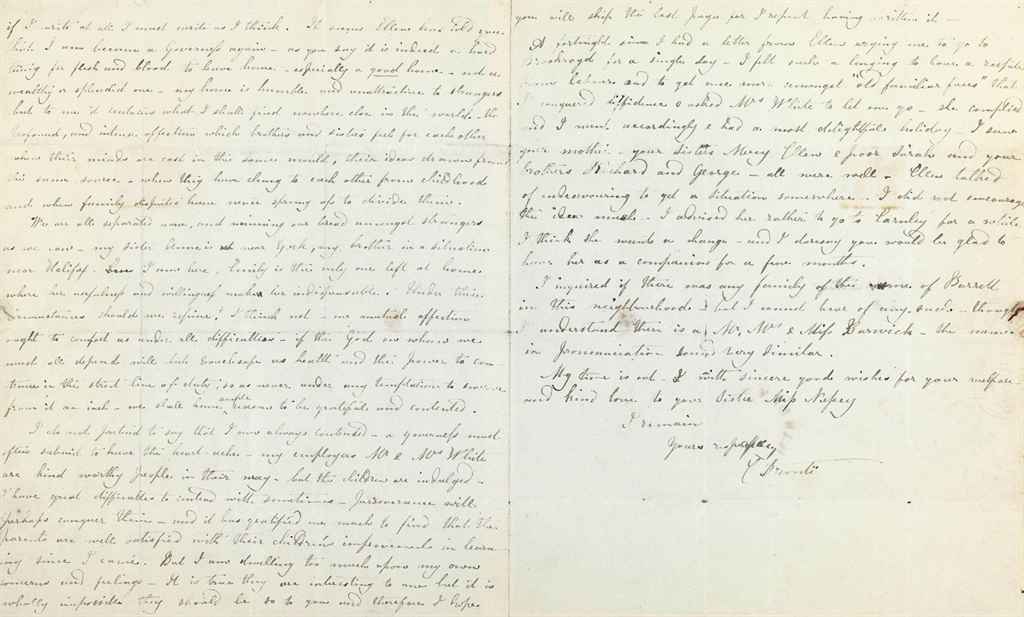 if I write at all I must write as I think. It seems Ellen has told you
that I am become a Governess again - as you say it is indeed a hard
thing for flesh and blood to leave home - especially a good home - not a
wealthy or splendid one - my home is humble and unattractive to strangers
but to me it contains what I shall find nowhere else in the world - the
profound, and intense affection which brothers and sisters feel for each other
when their minds are cast in the same mould, their ideas drawn from
the same source - when they have clung to each other from childhood
and when family disputes have never sprung up to divide them.
We are all separated now, and winning our bread amongst strangers
as we can - my sister Anne is near York, my brother in a situation
near Halifax. I am here, Emily is the only one left at home
where her usefulness and willingness make her indispensable. Under these
circumstances should we repine? I think not - our mutual affection
ought to comfort us under all difficulties - if the God on whom we
must all depend will but vouchsafe us health and the power to con-
tinue in the strict line of duty, so as never under any temptation to swerve
from it an inch - we shall have ample reason to be grateful and contented.
I do not pretend to say that I am always contented - a governess must
often submit to have the heart-ache - my employers Mr & Mrs White
are kind worthy people in their way - but the children are indulged -
I have great difficulties to contend with sometimes - Perseverance will
perhaps conquer them - and it has gratified me much to find that the
parents are well satisfied with their children's improvement in learn-
ing since I came. But I am dwelling too much upon my own
concerns and feelings - It is true they are interesting to me but it is
wholly impossible they should be so to you and therefore I hope
you will skip the last page for I repent having written it -
A fortnight since I had a letter from Ellen urging me to go to
Brookroyd for a single day - I felt such a longing to have a respite
from labour and to get once more amongst "old familiar faces" that
I conquered diffidence & asked Mrs White to let me go - she complied
and I went accordingly & had a most delightful holiday - I saw
your mother - your sisters Mercy Ellen & poor Sarah and your
brothers Richard and George - all were well - Ellen talked
of endeavouring to get a situation somewhere - I did not encourage
the idea much - I advised her rather to go to Earnley for a while
I think she wants a change - and I daresay you would be glad to
have her as a companion for a few months.
I inquired if there was any family of the name of Barrett
in this neighbourhood but I cannot hear of any such - though
I understand there is a Mr, Mrs & Miss Barwick - the names
in pronunciation sound very similar.
My time is out - I with sincere good wishes for your welfare
and kind love to your Sister Miss Nussey
I remain
Yours
C Brontë